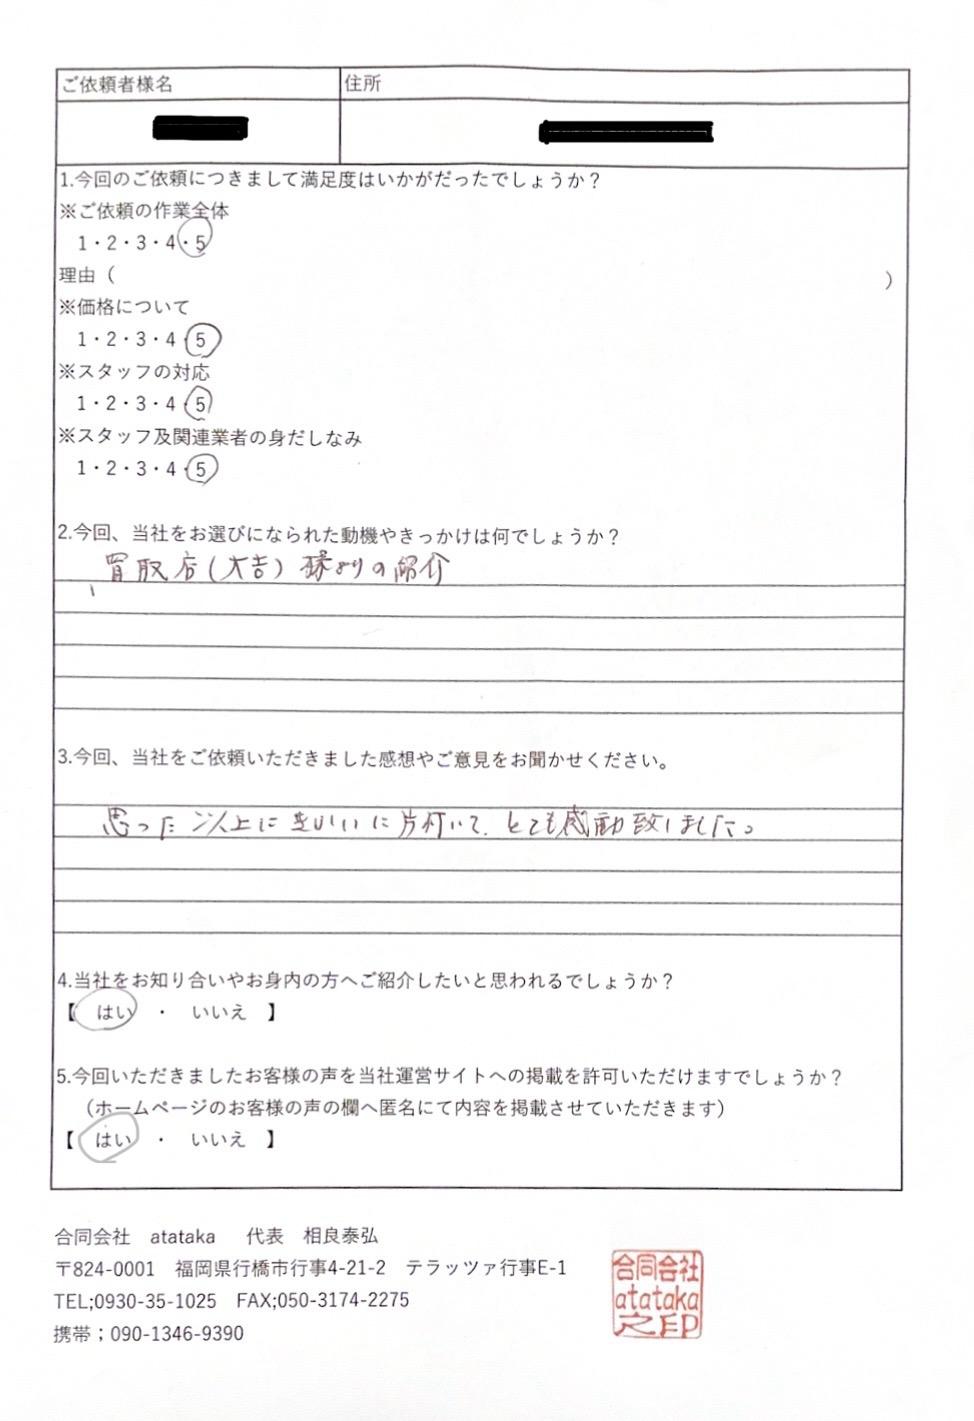 ご依頼者様名 住所
1.今回のご依頼につきまして満足度はいかがだったでしょうか？
※ご依頼の作業全体
1・2・3・4・5
理由（ ）
※価格について
1・2・3・4・5
※スタッフの対応
1・2・3・4・5
※スタッフ及関連業者の身だしなみ
1・2・3・4・5
2.今回、当社をお選びになられた動機やきっかけは何でしょうか？
買取店(大吉)様よりの紹介
3.今回、当社をご依頼いただきました感想やご意見をお聞かせください。
思った以上にきれいに片付いて、とても感動致しました。
4.当社をお知り合いやお身内の方へご紹介したいと思われるでしょうか？
【 はい ・ いいえ 】
5.今回いただきましたお客様の声を当社運営サイトへの掲載を許可いただけますでしょうか？
（ホームページのお客様の声の欄へ匿名にて内容を掲載させていただきます）
【 はい ・ いいえ 】
合同会社 atataka 代表 相良泰弘
〒824-0001 福岡県行橋市行事4-21-2 テラッツァ行事E-1
TEL;0930-35-1025 FAX;050-3174-2275
携帯；090-1346-9390
合同会社
atataka
之印